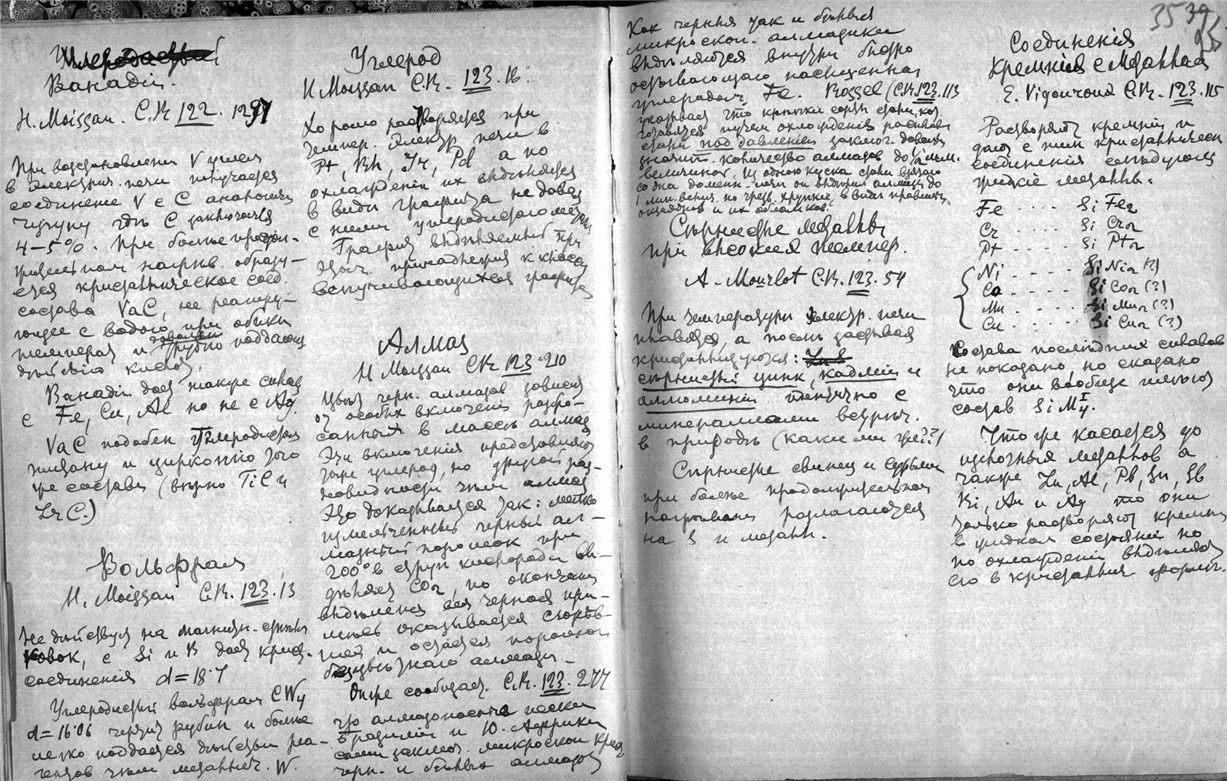 Ванадій.
H. Moissan. C.R. 122. 1297
При возстановленіи V углем
в электрич. печи получается
соединеніе V с C аналогичн.
чугуну где C заключается
4–5%. При более продол-
жительном нагрев. образу-
ется кристаллическое соед.
состава VaC, не реагиру-
ющее с водою при обыкн.
температ и довольно трудно поддающ
действію кислот.
Ванадій дает также сплав
с Fe, Cu, Al но не с Ag
VaC подобен углеродистым
титану и цирконію того
же состава (верно TiC и
ZrC.)
Вольфрам
H. Moissan C.R. 123. 13
Не действуя на магнитн. стрелк
с Si и B дает крист.
соединенія d=18.7
Углеродистый вольфрам CW4
d=16.06 чертит рубин и более
легко поддается действію реа-
гентов чем металлич. W.
Углерод
H. Moissan C.R. 123. 16.
Хорошо растворяется при
темпер. электр. печи в
Pt, Rh, Ir, Pd а по
охлажденіи их выделяется
в виде графита не давая
с ними углеродистого металла
Графит выделяемый при
этом принадлежит к классу
вспучивающихся графитов
Алмаз
H Moissan CR 123. 210
Цвет черн. алмазов зависит
от особых включеній разбро-
санных в массе алмаза
Эти включенія представляют
тоже углерод, но другой раз-
новидности чем алмаз
Это доказывается так: мелко
измельченный черный ал-
мазный порошок при
200° в струе кислорода вы-
деляет CO2, по окончаніи
выделенія вся черная при-
месь оказывается сгорев-
шей и остается порошок
безцветнаго алмаза.
Он же сообщает. C.R. 123. 277
что алмазоносные пески
Бразиліи и Ю. Африки
сами заключ. микроскоп крист
черн. и белых алмазов
35 39
Как черные так и белые
микроскоп. алмазики
выделяются внутри быстро
остывающаго насыщеннаго
углеродом Fe. Rossel (C.R. 123. 113
указывает что крупинки сорта стали, кот.
готовятся путем охлажденія расплавл
стали под давленіем заключ. довольно
значит. количество алмазов до ½ мм.
величиной. Из одного куска стали взятаго
со дна доменн. печи он выделил алмазы до
1 мм. велич. но чрезв. хрупкие, в виде правильн.
октаэдров и их обломков.
Сернистые металлы
при высокой темпер.
A. Mourlot C.R. 123. 54
При температуре электр. печи
плавятся, а после застывая
кристаллизуются:
сернистый цинк, кадмій и
алюминій тождично с
минералами встреч.
в природе (какие ли же??)
Сернистые свинец и сурьма
при более продолжительном
нагреваніи разлагаются
на S и металл.
Соединенія
Кремнія с Металлами
E. Vigouroux C.R. 123. 115
Растворяют кремній и
дают с ним кристаллическ
соединенія следующіе
жидкіе металлы.
Fe . . . . . Si Fe2
Cr . . . . . Si Cr2
Pt . . . . . Si Pt2
Ni . . . . . Si Ni2 (?)
Co . . . . . Si Co2 (?)
Mn . . . . . Si Mn2 (?)
Cu . . . . . Si Cu2 (?)
Состава последних сплавов
не показано но сказано
что они вообще имеют
состав
Что же касается до
щелочных металлов а
также Zn, Al, Pb, Sn, Sb
Bi, Au и Ag то они
только растворяют кремній
в жидком состояніи но
по охлажденіи выделяют
его в кристаллич. форме.